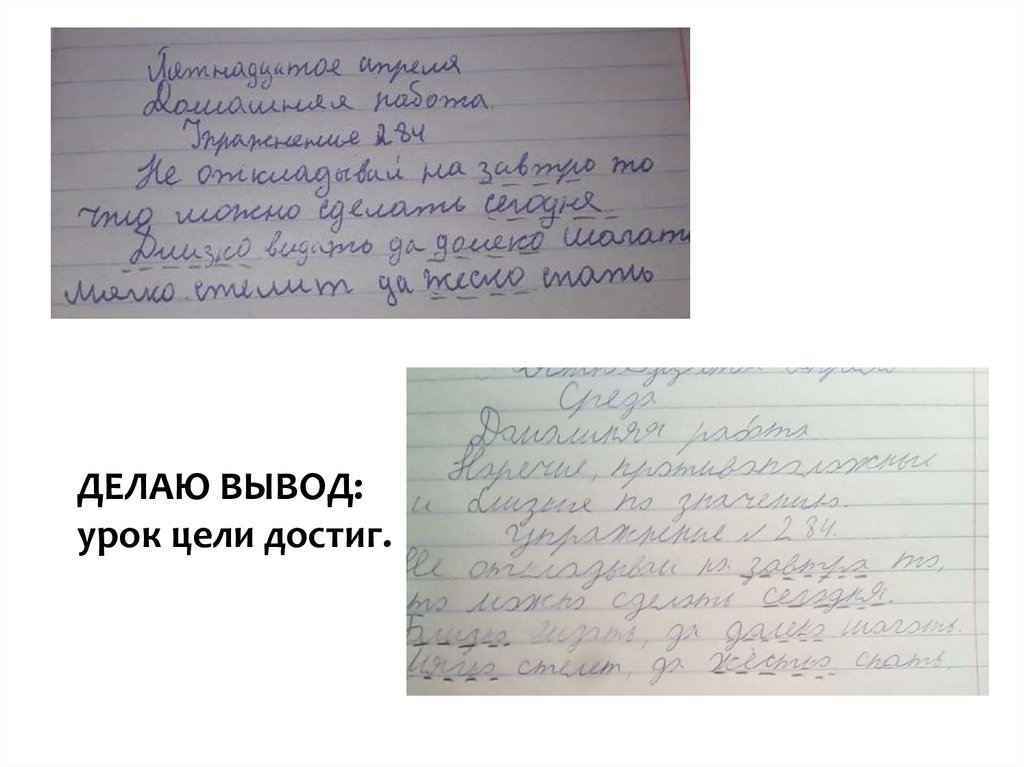 Пятнадцатое апреля
Домашняя работа.
Упражнение 284
Не откладывай на завтро то
что можно сделать сегодня
Близко видать да долеко шагать
Мягко стелит да жеско спать
ДЕЛАЮ ВЫВОД:
урок цели достиг.
Среда
Домашняя работа.
Наречие, противоположные
и близкие по значению.
Упражнение № 284.
Не откладывай на завтра то,
что можно сделать сегодня.
Близко видать, да далеко шагать.
Мягко стелет, да жёстко спать.